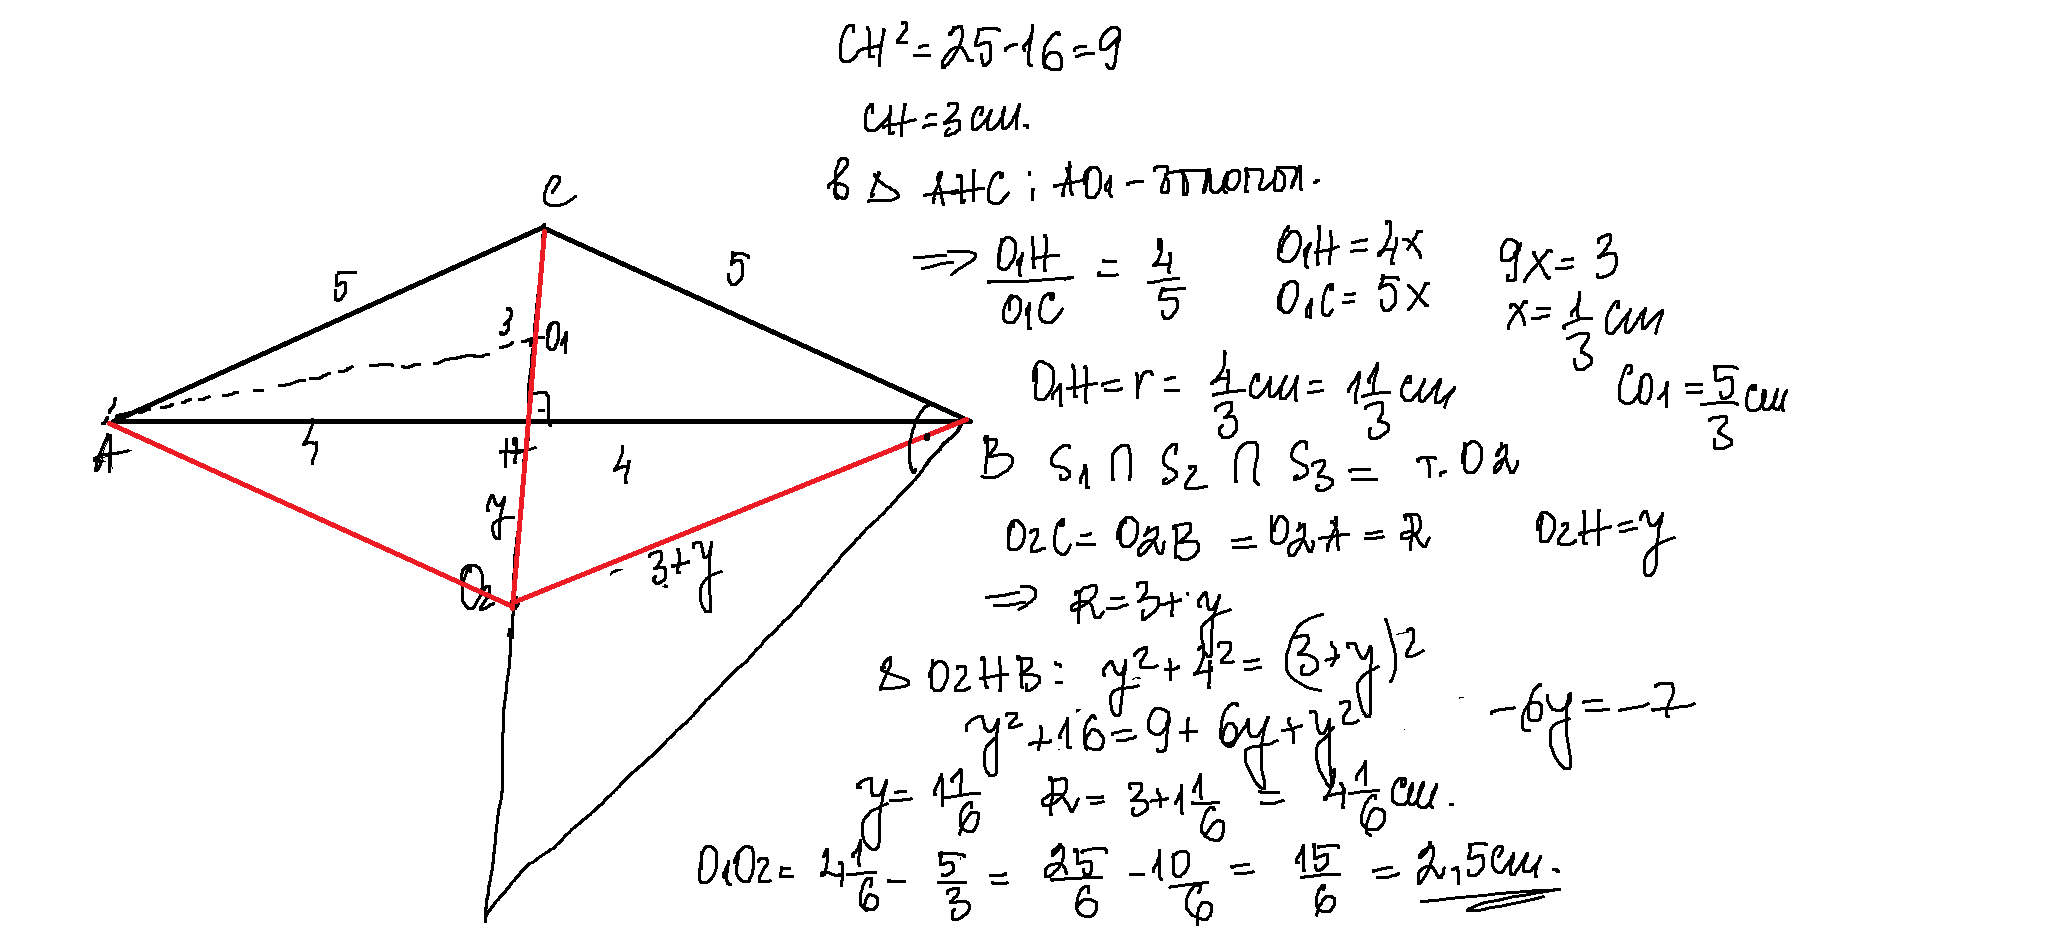 CH² = 25-16 = 9
CH = 3 см.
в Δ AHC : AO₁ - ъглопол.
⇒ O₁H/O₁C = 4/5
O₁H = 4x
O₁C = 5x
9x = 3
x = 1/3 см
O₁H = r = 4/3 см = 1 1/3 см
CO₁ = 5/3 см
S₁ ∩ S₂ ∩ S₃ = т. O₂
O₂C = O₂B = O₂A = R
O₂H = y
⇒ R = 3+y
Δ O₂HB : y² + 4² = (3+y)²
y² + 16 = 9 + 6y + y²
-6y = -7
y = 1 1/6
R = 3 + 1 1/6 = 4 1/6 см.
O₁O₂ = 4 1/6 - 5/3 = 25/6 - 10/6 = 15/6 = 2,5 см.
C
5
5
3
O₁
A
4
H
4
B
y
O₂
3+y